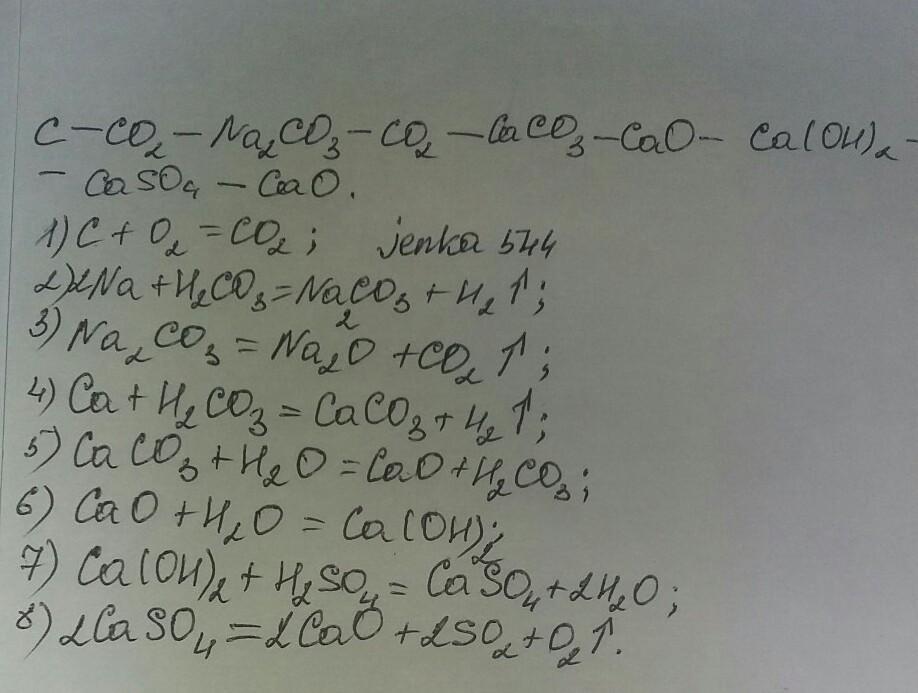 C – CO₂ – Na₂CO₃ – CO₂ – CaCO₃ – CaO – Ca(OH)₂ –
– CaSO₄ – CaO.
1) C + O₂ = CO₂ ; jenka 544
2) 2Na + H₂CO₃ = Na₂CO₃ + H₂↑ ;
3) Na₂CO₃ = Na₂O + CO₂↑ ;
4) Ca + H₂CO₃ = CaCO₃ + H₂↑ ;
5) CaCO₃ + H₂O = CaO + H₂CO₃ ;
6) CaO + H₂O = Ca(OH)₂ ;
7) Ca(OH)₂ + H₂SO₄ = CaSO₄ + 2H₂O ;
8) 2CaSO₄ = 2CaO + 2SO₂ + O₂↑.